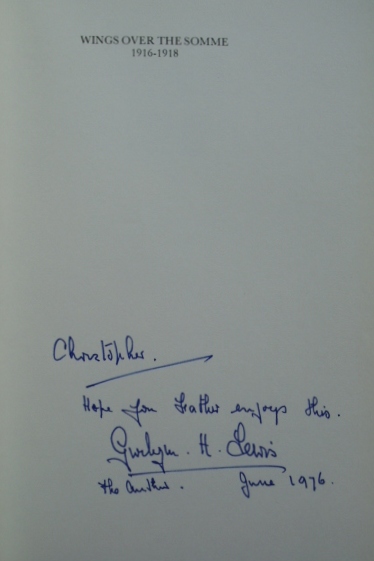 WINGS OVER THE SOMME
1916-1918
Christopher.
Hope your Father enjoys this.
Gwilym. H. Lewis
The Author. June 1976.